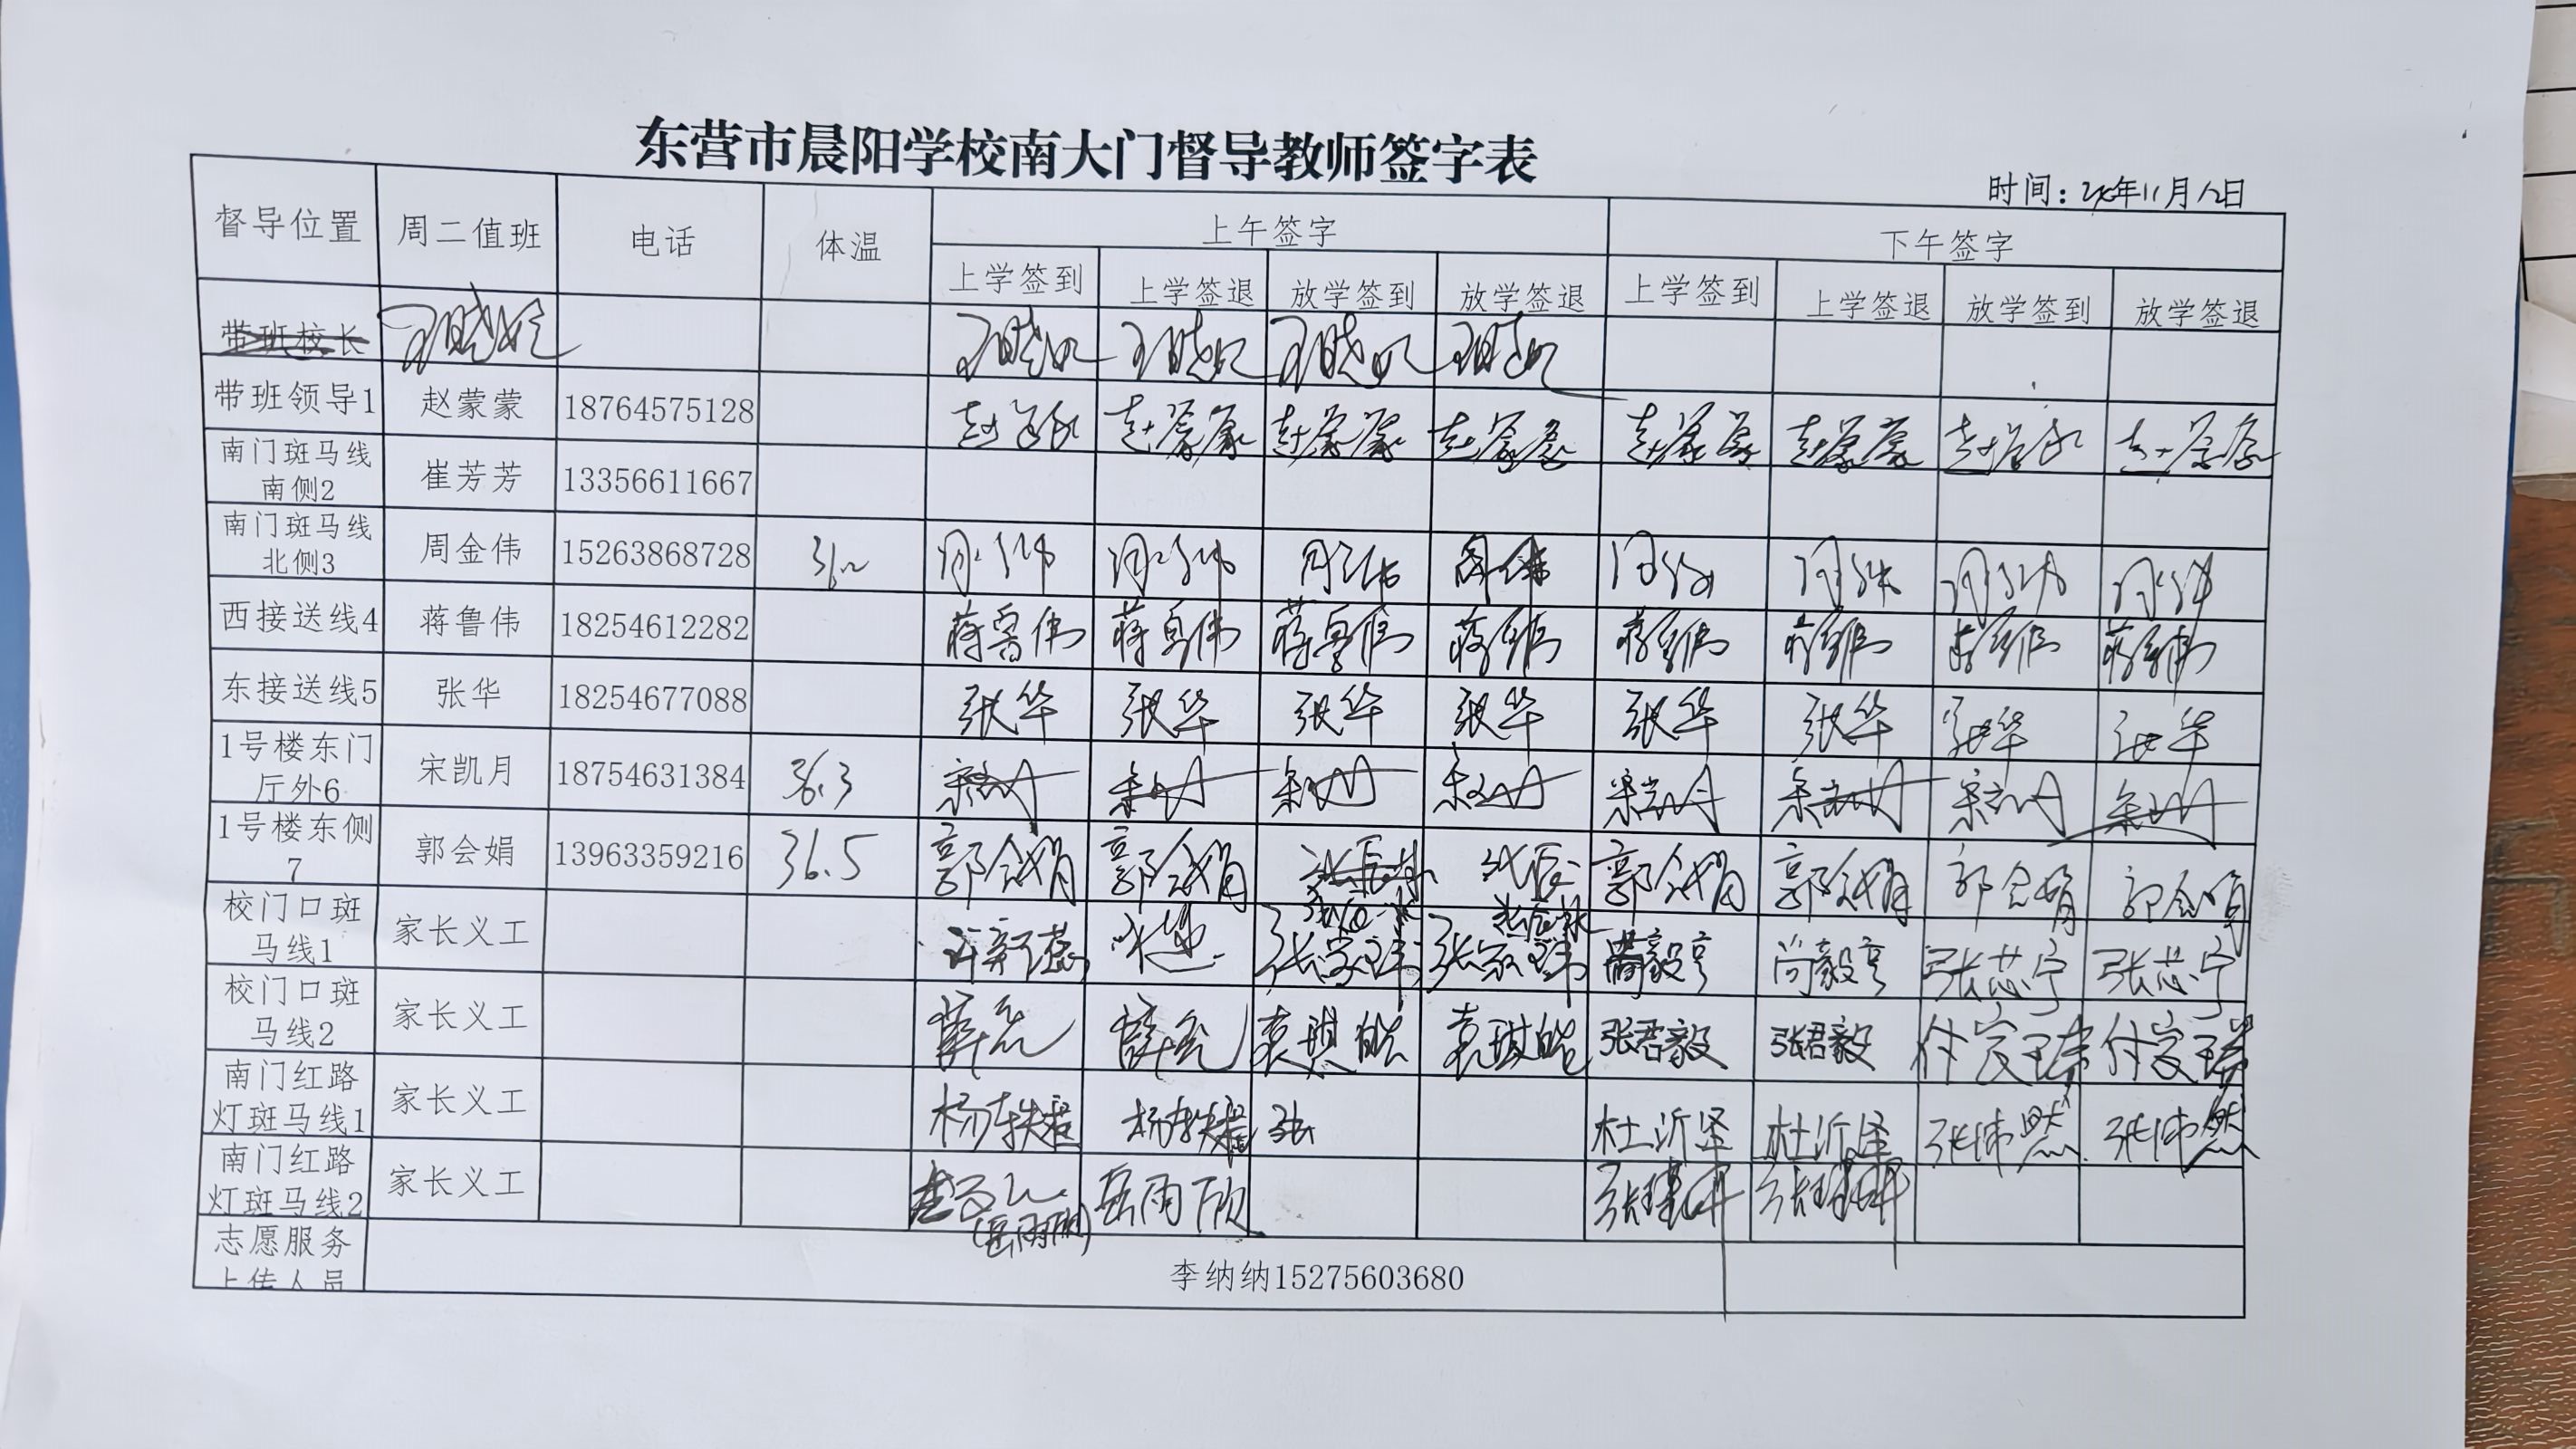 东营市晨阳学校南大门督导教师签字表
时间：年11月八日
督导位置 周二值班 电话 体温 上午签字 下午签字
上学签到 上学签退 放学签到 放学签退 上学签到 上学签退 放学签到 放学签退
带班校长
带班领导1 赵蒙蒙 18764575128 赵蒙蒙 赵蒙蒙 赵蒙蒙 赵蒙蒙 赵蒙蒙 赵蒙蒙 赵蒙蒙 赵蒙蒙
南门斑马线
南侧2 崔芳芳 13356611667
南门斑马线
北侧3 周金伟 15263868728 周金伟 周金伟 周金伟 周金伟 周金伟 周金伟 周金伟 周金伟
西接送线4 蒋鲁伟 18254612282 蒋鲁伟 蒋鲁伟 蒋鲁伟 蒋鲁伟 蒋鲁伟 蒋鲁伟 蒋鲁伟 蒋鲁伟
东接送线5 张华 18254677088 张华 张华 张华 张华 张华 张华 张华 张华
1号楼东门
厅外6 宋凯月 18754631384 36.3 宋凯月 宋凯月 宋凯月 宋凯月 宋凯月 宋凯月 宋凯月 宋凯月
1号楼东侧
7 郭会娟 13963359216 36.5 郭会娟 郭会娟 郭会娟 郭会娟 郭会娟 郭会娟
校门口斑
马线1 家长义工 张家玮 张家玮 尚毅亨 尚毅亨 张芯宁 张芯宁
校门口斑
马线2 家长义工 薛亮 薛亮 袁琪皓 袁琪皓 张君毅 张君毅 付家瑞 付家瑞
南门红路
灯斑马线1 家长义工 杨轶程 杨轶程 张 杜沂泽 杜沂泽 张沛然 张沛然
南门红路
灯斑马线2 家长义工 (岳雨欣) 岳雨欣
志愿服务
上传人员 李纳纳15275603680